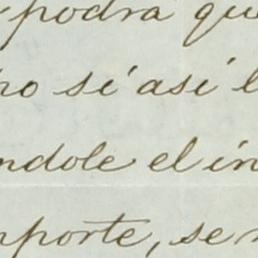 podra que
no si así l
ndole el in
mporte, se